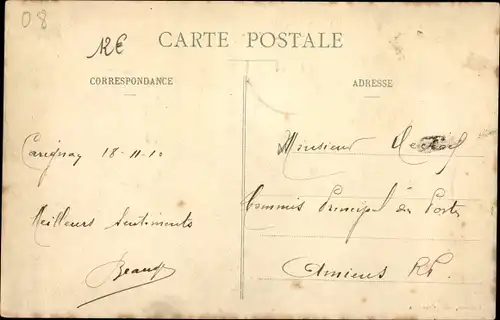 08
CARTE POSTALE
CORRESPONDANCE
ADRESSE
Carignan 18-11-10
Meilleurs Sentiments
Monsieur
Commis Principal des Postes
Amiens RP.